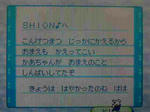 SHION♪へ
こんげつまつ じっかにかえるから
おまえも かえってこい
かあちゃんが おまえのこと
しんぱいしてたぞ
きょうは はやかったのね はは